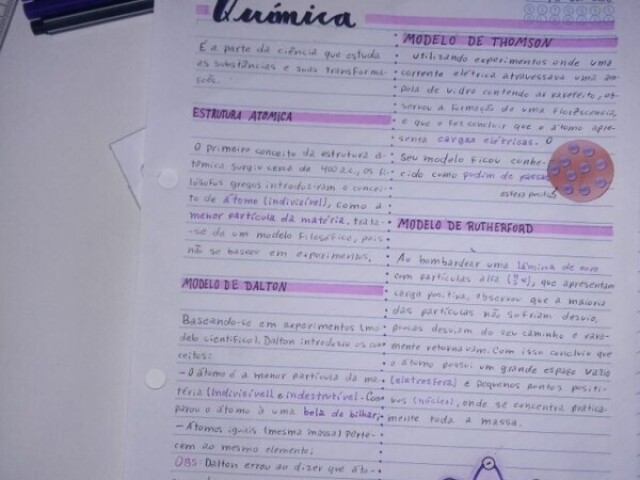 Química
É a parte da ciência que estuda
as substâncias e suas transforma-
ções.
ESTRUTURA ATÔMICA
O primeiro conceito da estrutura a-
tômica surgiu cerca de 400 a.c., os fi-
lósofos gregos introduziram o concei-
to de átomo (indivisível), como a
menor partícula da matéria, trata-
-se de um modelo filosófico, pois
não se baseou em experimentos.
MODELO DE DALTON
Baseando-se em experimentos (mo-
delo científico), Dalton introduziu os con-
ceitos:
- O átomo é a menor partícula da ma-
téria (indivisível) e indestrutível. Com-
parou o átomo à uma bola de bilhar;
- Átomos iguais (mesma massa) perte-
cem ao mesmo elemento;
OBS: Dalton errou ao dizer que áto-
MODELO DE THOMSON
utilizando experimentos onde uma
corrente elétrica atravessava uma am-
pola de vidro contendo ar rarefeito, ob-
servou a formação de uma florescência,
e que o fez concluir que o átomo apre-
senta cargas elétricas. O
seu modelo ficou conhe-
cido como pudim de passas
esfera positiva
MODELO DE RUTHERFORD
Ao bombardear uma lâmina de ouro
com partículas alfa, que apresentam
carga positiva, observou que a maioria
das partículas não sofriam desvio,
poucas desviam do seu caminho e rara-
mente retornavam. Com isso concluiu que
o átomo possui um grande espaço vazio
(eletrosfera) e pequenos pontos positi-
vos (núcleo), onde se concentra pratica-
mente toda a massa.